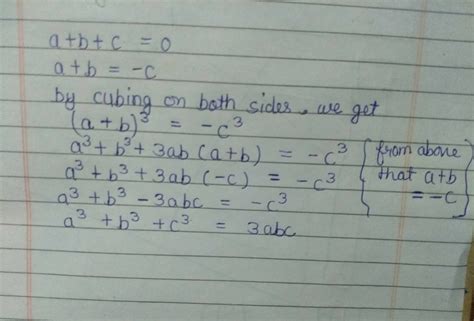 a+b+c = 0
a+b = -c
by cubing on both sides, we get
(a+b)³ = -c³
a³+b³+3ab(a+b) = -c³ {from above
a³+b³+3ab(-c) = -c³ that a+b
a³+b³-3abc = -c³ = -c}
a³+b³+c³ = 3abc